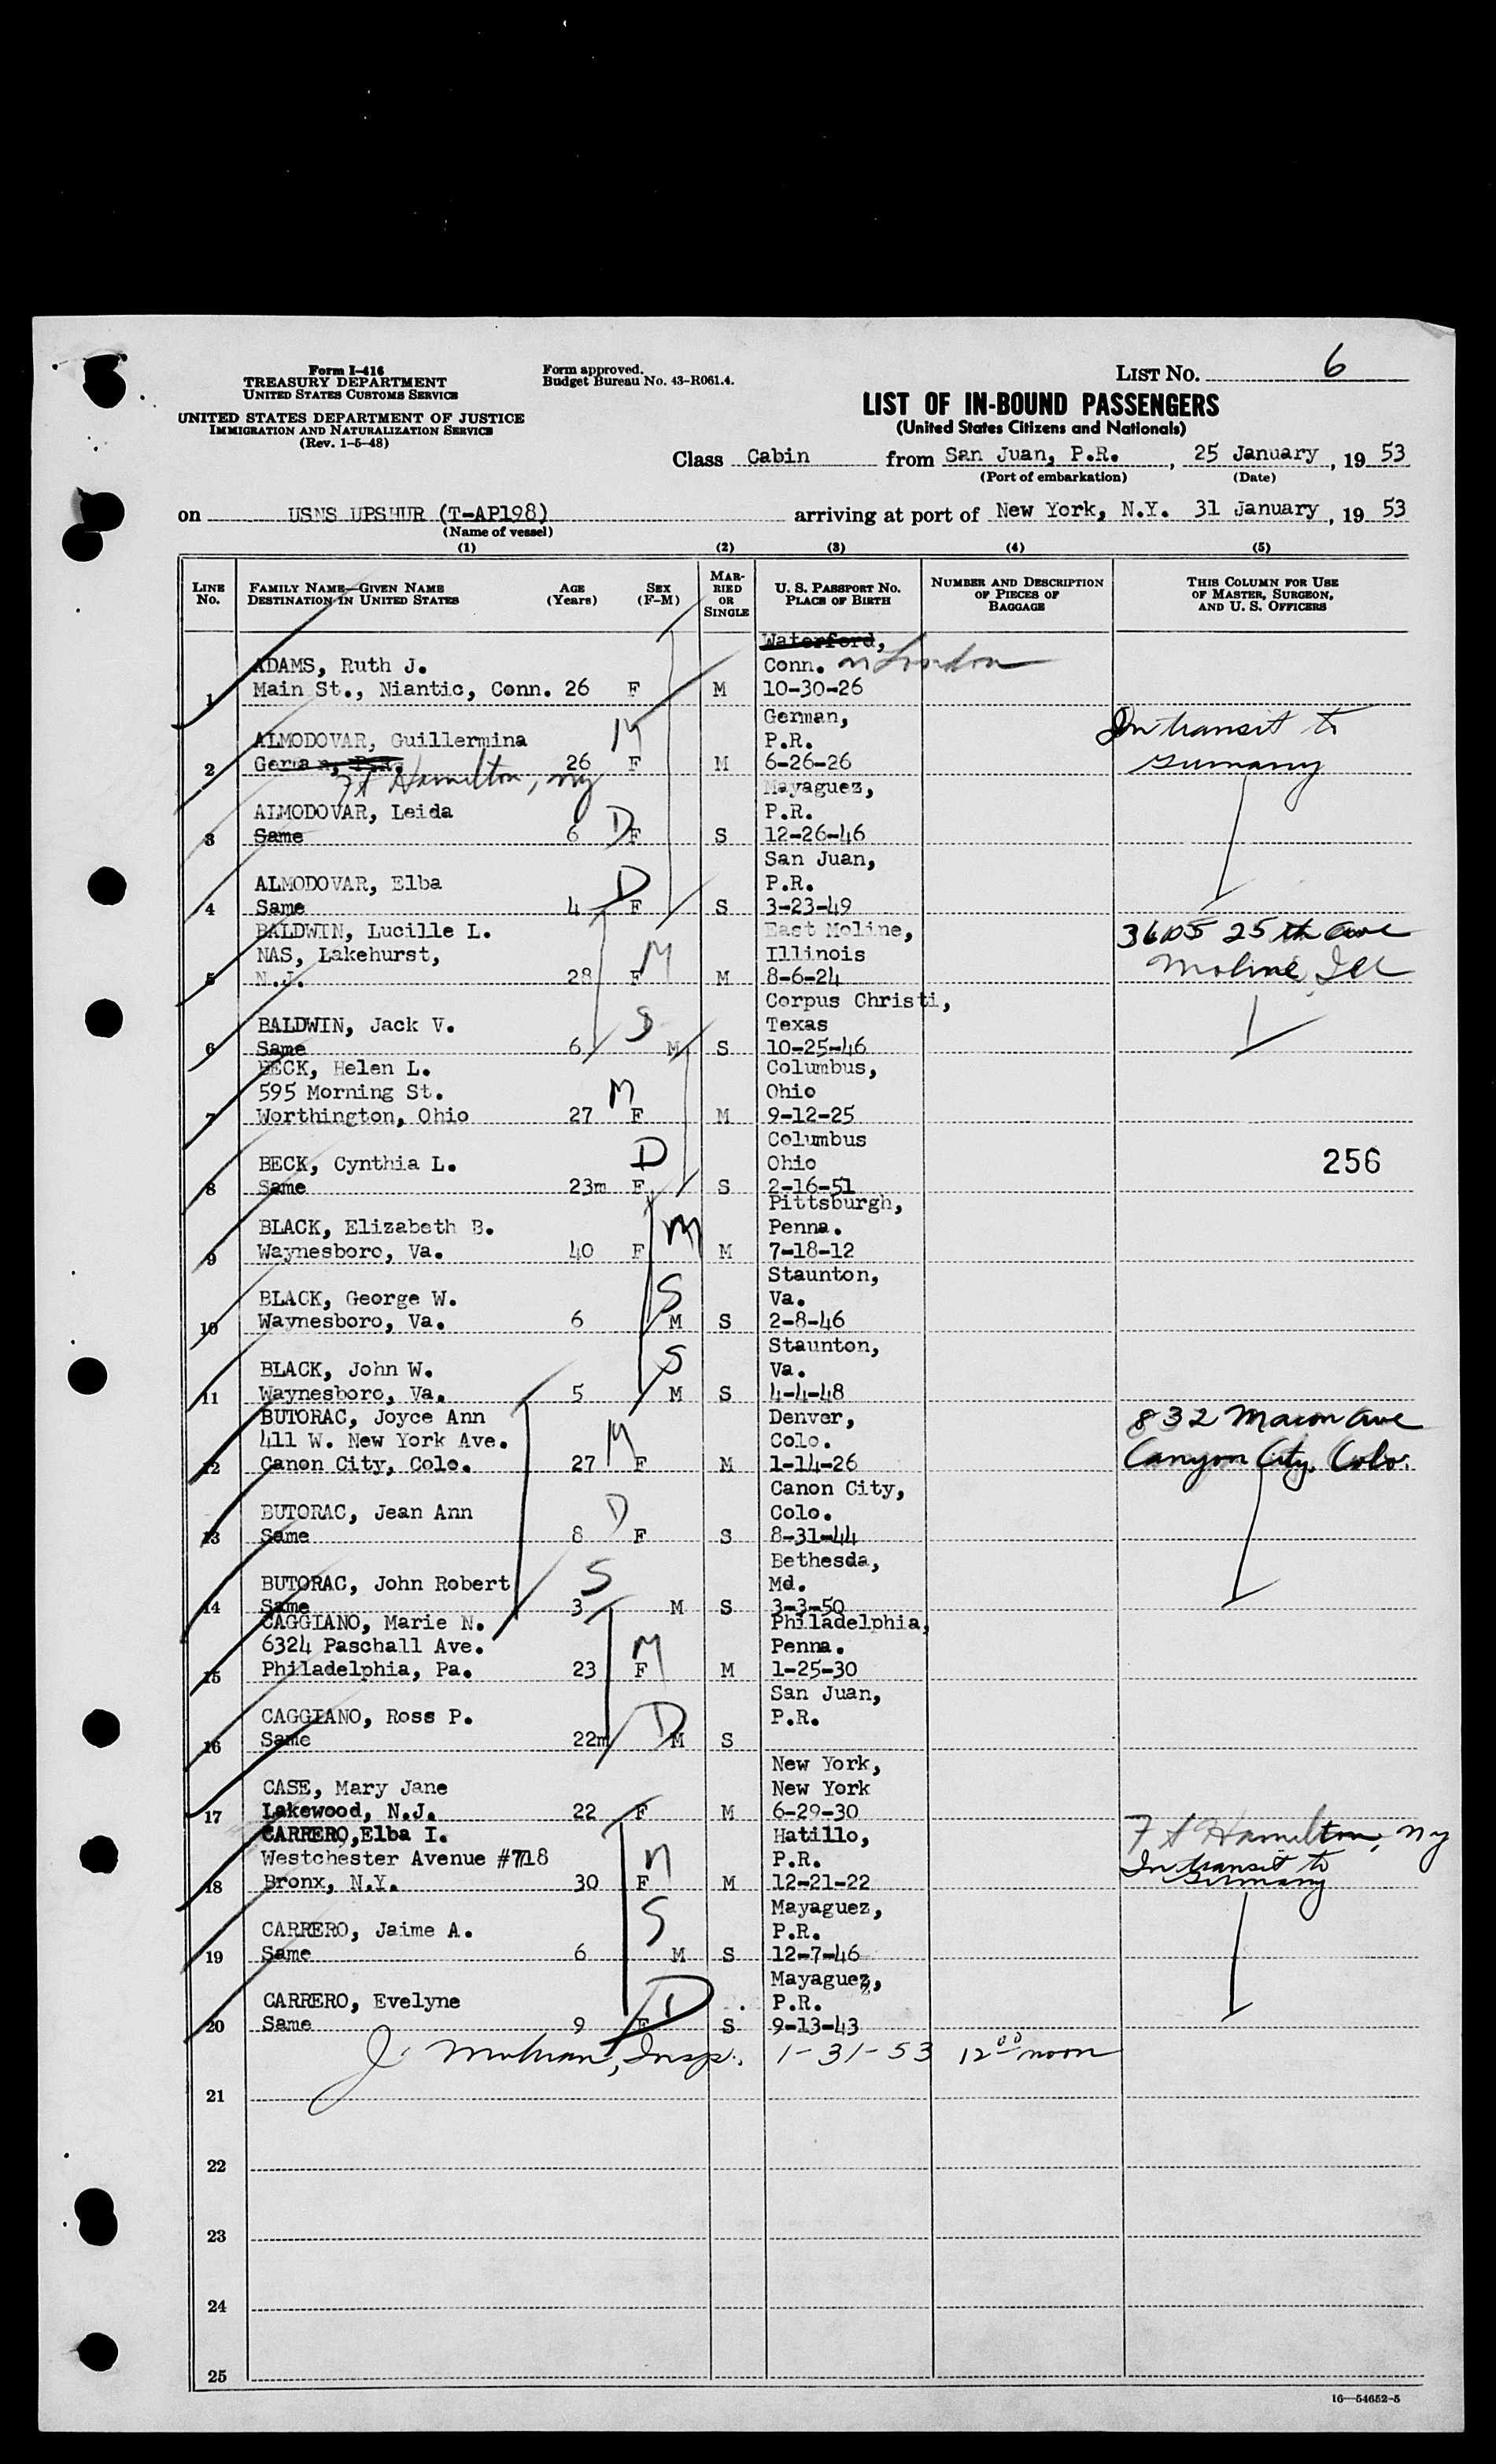 Form I-416
TREASURY DEPARTMENT
UNITED STATES CUSTOMS SERVICE
UNITED STATES DEPARTMENT OF JUSTICE
IMMIGRATION AND NATURALIZATION SERVICE
(Rev. 1-5-48)
Form approved.
Budget Bureau No. 43-R061.4.
LIST NO. 6
LIST OF IN-BOUND PASSENGERS
(United States Citizens and Nationals)
Class Cabin from San Juan, P.R., 25 January, 19 53
(Port of embarkation) (Date)
on USNS UPSHUR (T-AP198) arriving at port of New York, N.Y. 31 January, 19 53
(Name of vessel)
(1) (2) (3) (4) (5)
LINE NO.
FAMILY NAME—GIVEN NAME
DESTINATION IN UNITED STATES
AGE
(Years)
SEX
(F-M)
MAR-
RIED
OR
SINGLE
U. S. PASSPORT NO.
PLACE OF BIRTH
NUMBER AND DESCRIPTION
OF PIECES OF
BAGGAGE
THIS COLUMN FOR USE
OF MASTER, SURGEON,
AND U. S. OFFICERS
Waterford,
ADAMS, Ruth J. Conn. London
1 Main St., Niantic, Conn. 26 F M 10-30-26
German,
ALMODOVAR, Guillermina M P.R. In transit to
2 German, P.R. 26 F M 6-26-26 Germany
Ft Hamilton, NY Mayaguez,
ALMODOVAR, Leida D P.R.
3 Same 6 F S 12-26-46
San Juan,
ALMODOVAR, Elba D P.R.
4 Same 4 F S 3-23-49
BALDWIN, Lucille L. East Moline, 3605 25th Ave
NAS, Lakehurst, M Illinois Moline, Ill
5 N.J. 28 F M 8-6-24
Corpus Christi,
BALDWIN, Jack V. S Texas
6 Same 6 M S 10-25-46
BECK, Helen L. Columbus,
595 Morning St. M Ohio
7 Worthington, Ohio 27 F M 9-12-25
Columbus
BECK, Cynthia L. D Ohio 256
8 Same 23m F S 2-16-51
Pittsburgh,
BLACK, Elizabeth B. M Penna.
9 Waynesboro, Va. 40 F M 7-18-12
Staunton,
BLACK, George W. S Va.
10 Waynesboro, Va. 6 M S 2-8-46
Staunton,
BLACK, John W. S Va.
11 Waynesboro, Va. 5 M S 4-4-48
BUTORAC, Joyce Ann Denver, 832 Macon Ave
411 W. New York Ave. M Colo. Canyon City, Colo.
12 Canon City, Colo. 27 F M 1-14-26
Canon City,
BUTORAC, Jean Ann D Colo.
13 Same 8 F S 8-31-44
Bethesda,
BUTORAC, John Robert S Md.
14 Same 3 M S 3-3-50
CAGGIANO, Marie N. Philadelphia,
6324 Paschall Ave. M Penna.
15 Philadelphia, Pa. 23 F M 1-25-30
San Juan,
CAGGIANO, Ross P. D P.R.
16 Same 22m M S
New York,
CASE, Mary Jane New York
17 Lakewood, N.J. 22 F M 6-29-30
CARRERO, Elba I. Hatillo, Ft Hamilton, NY
Westchester Avenue #718 M P.R. In transit to
18 Bronx, N.Y. 30 F M 12-21-22 Germany
Mayaguez,
CARRERO, Jaime A. S P.R.
19 Same 6 M S 12-7-46
Mayaguez,
CARRERO, Evelyne D P.R.
20 Same 9 F S 9-13-43
J. Insp. 1-31-53 12 00 noon
21
22
23
24
25
16—54652-5